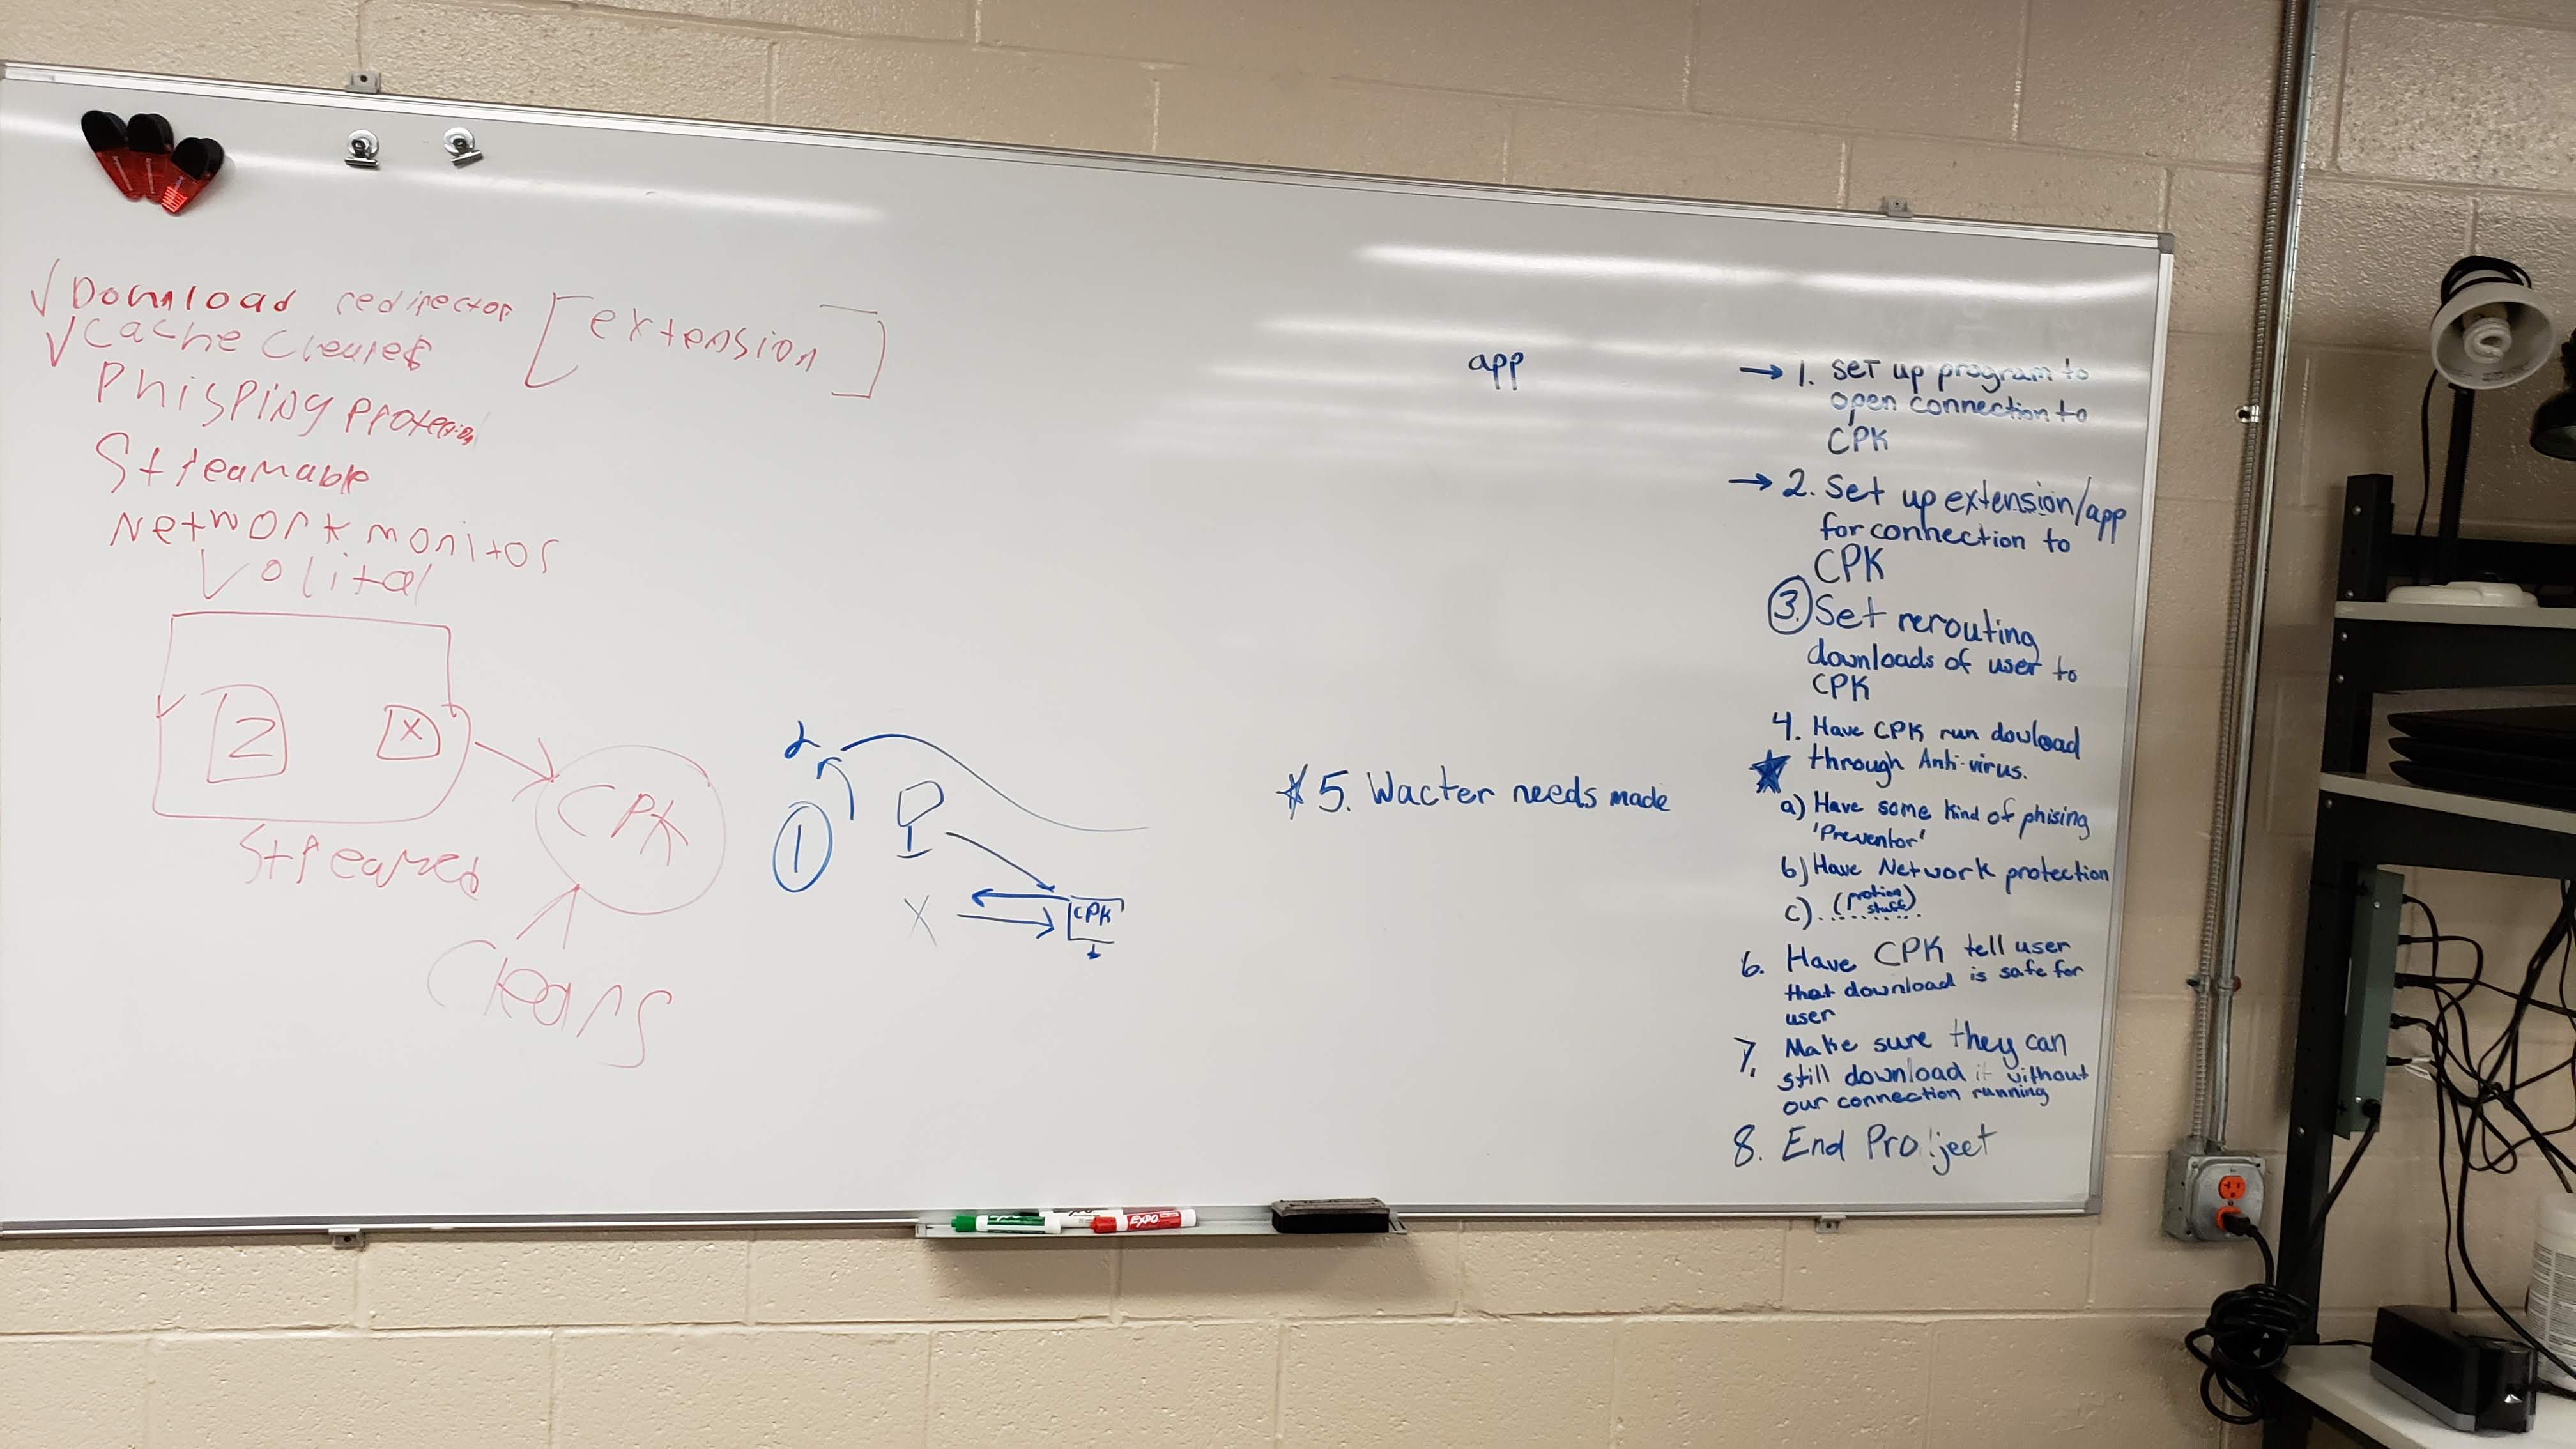 √ Download redirector [extension]
√ Cache Clearer
Phisping protection
Streamable
Network monitor
Volital
2
x
CPK
Streamed
Cleans
2
1
X
CPK
app
* 5. Wacter needs made
→ 1. set up program to
open connection to
CPK
→ 2. Set up extension/app
for connection to
CPK
3. Set rerouting
downloads of user to
CPK
4. Have CPK run dowload
through Anti-virus.
a) Have some kind of phising
'Preventor'
b) Have Network protection
c). (protion
stuff)
6. Have CPK tell user
that download is safe for
user
7. Make sure they can
still download it without
our connection running
8. End Project
EXPO